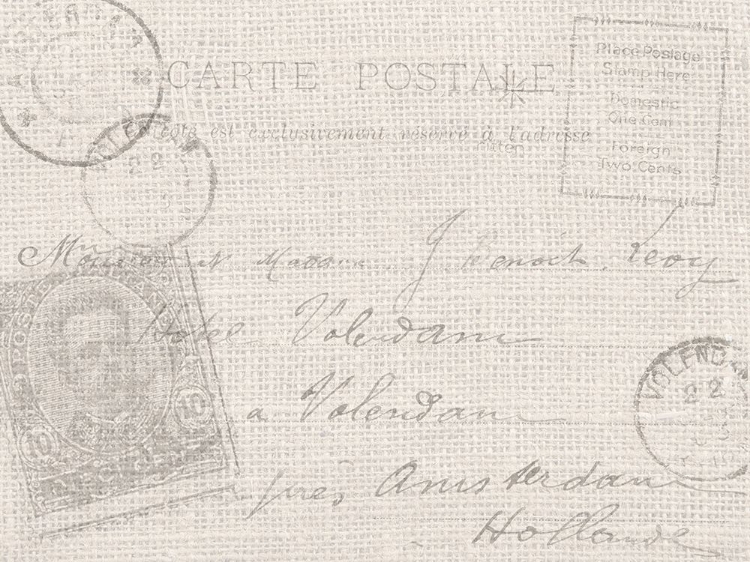 CARTE POSTALE
Place Postage
Stamp Here
Domestic
One Cent
Foreign
Two Cents
côté est exclusivement réservé à l'adresse
VOLENDAM
22
Monsieur et Madame J Benoit Levy
Hôtel Volendam
a Volendam
près Amsterdam
Hollande
VOLENDAM
22
10
10